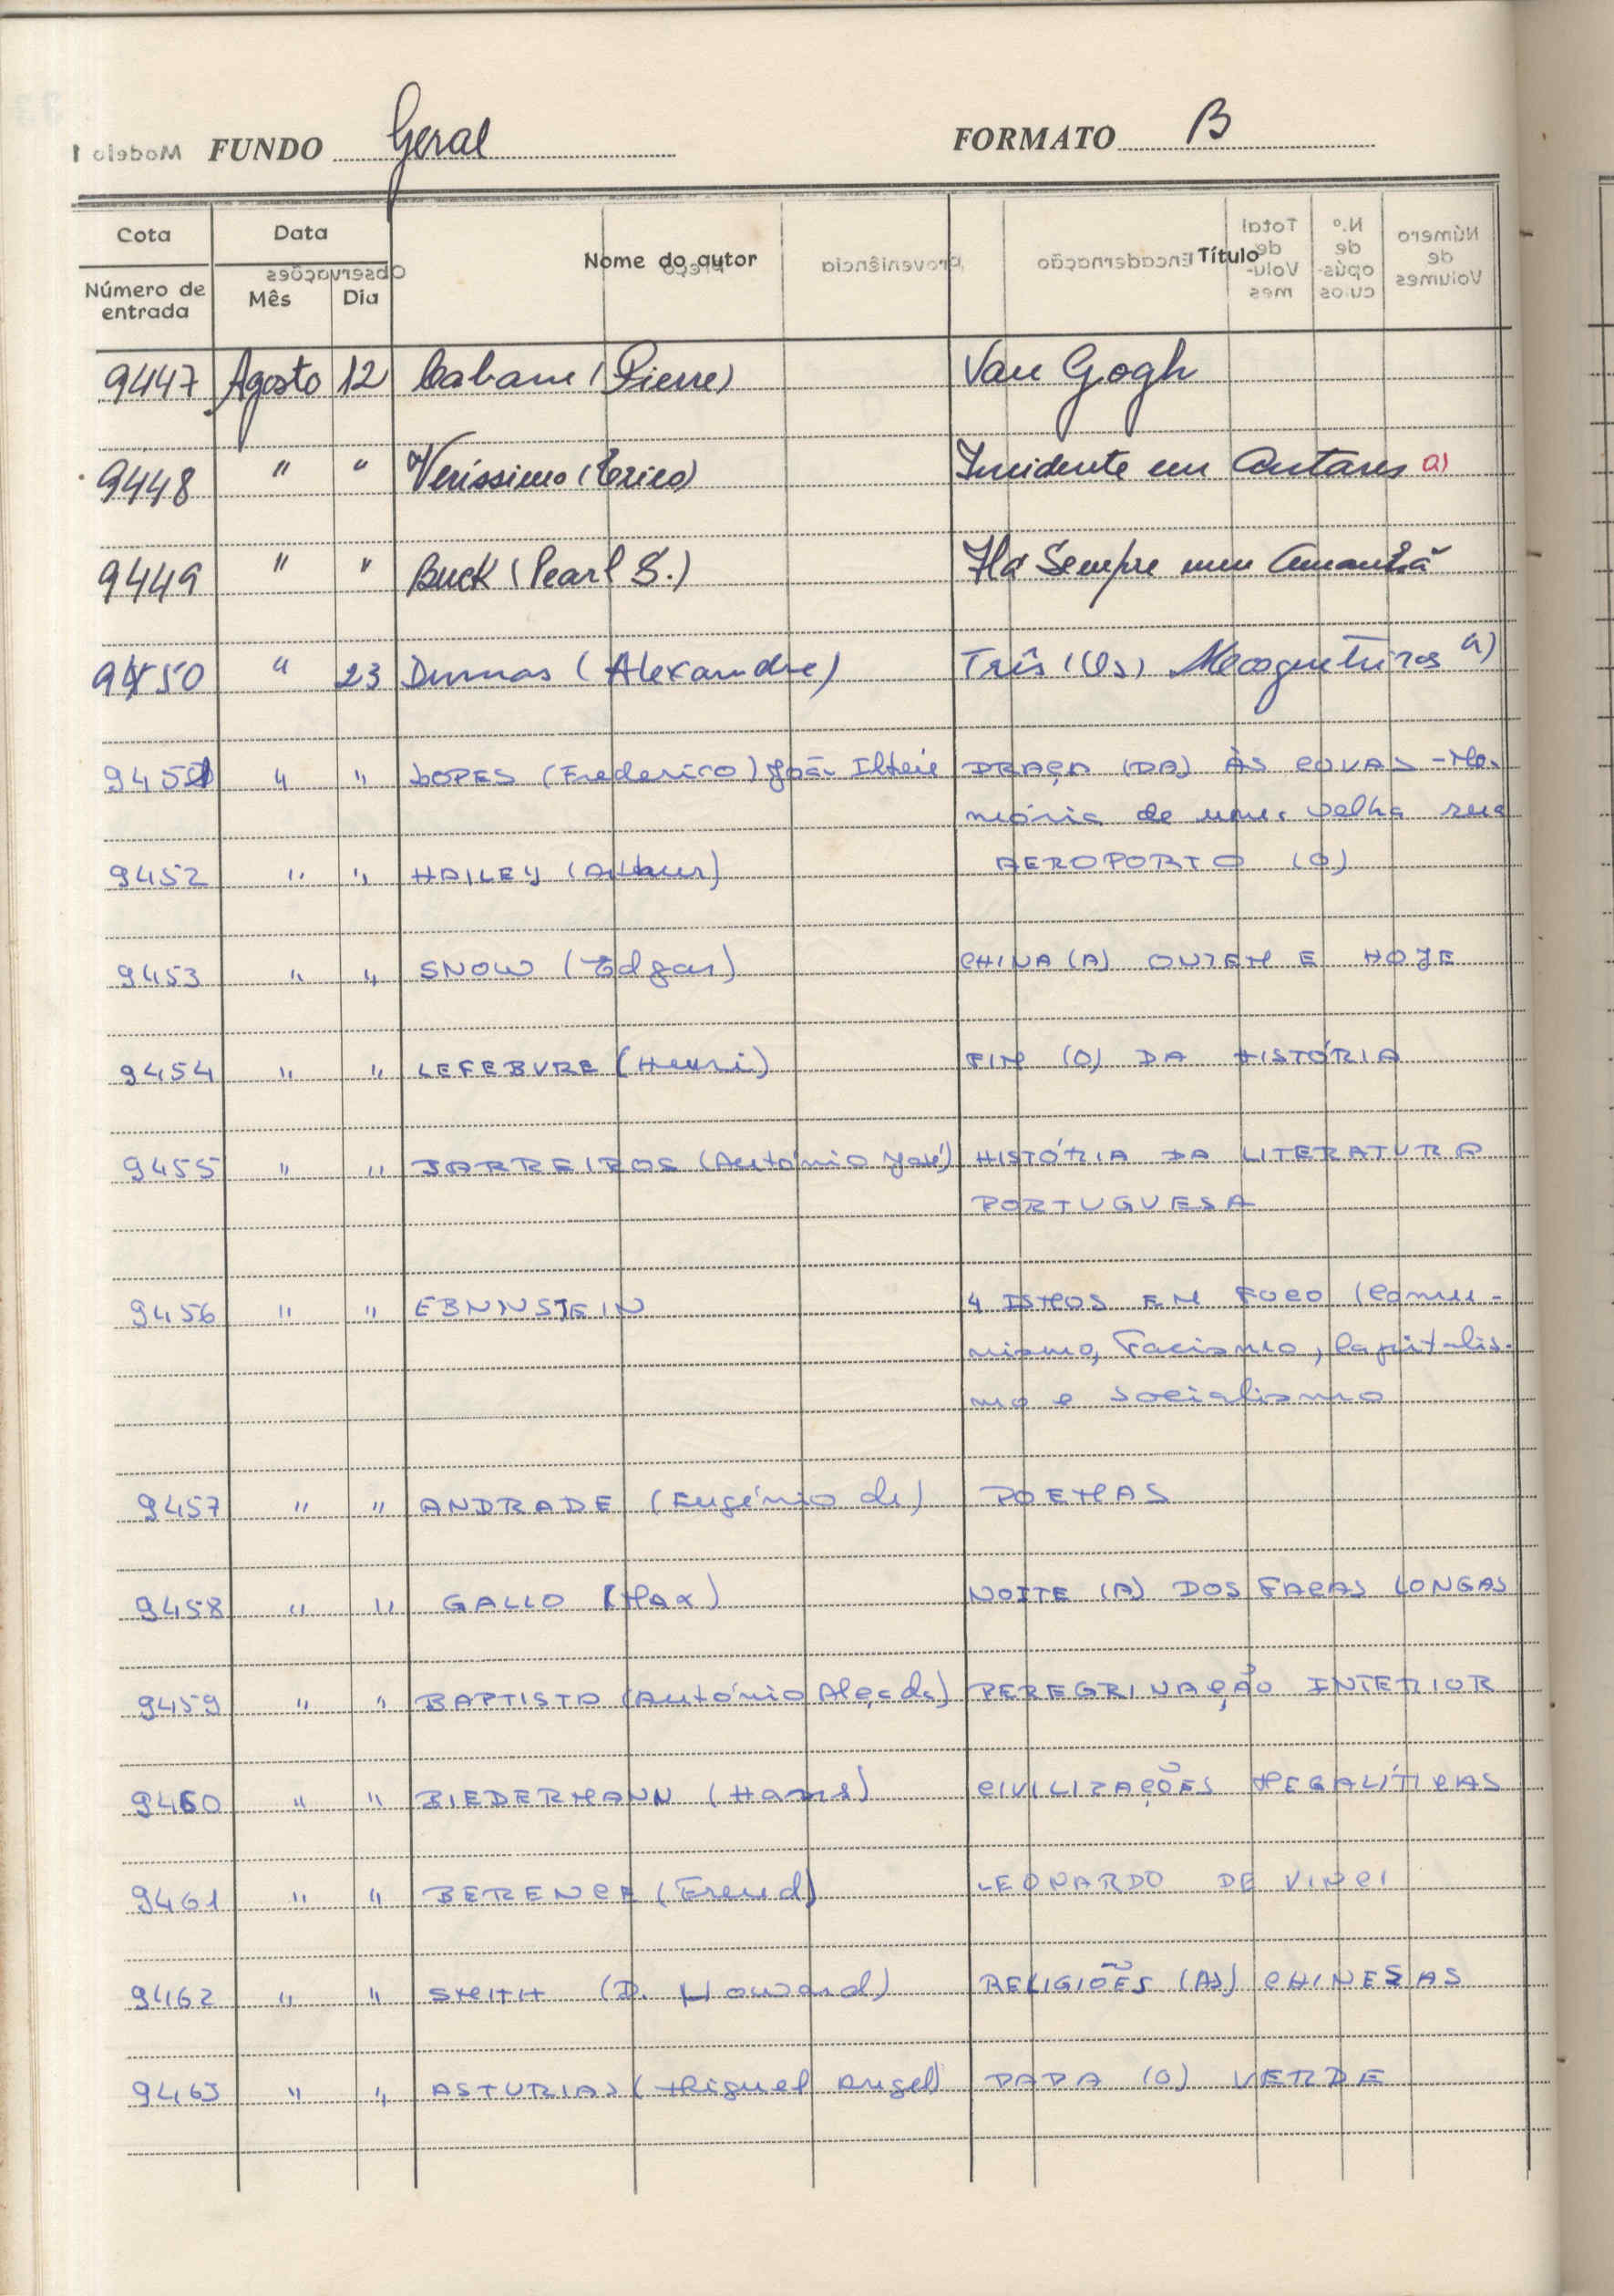 FUNDO Geral FORMATO B
Modelo 1
Cota Data Nome do autor Título
Observações Proveniência Encadernação Total de Volumes N.º de opúsculos Número de Volumes
Número de entrada Mês Dia
9447 Agosto 12 Cabane (Pierre) Van Gogh
9448 " " Veríssimo (Erico) Incidente em Antares a)
9449 " " Buck (Pearl S.) Há Sempre um Amanhã
9450 " 23 Dumas (Alexandre) Três (Os) Mosqueteiros a)
9451 " " LOPES (Frederico) João Ilhéu PRAÇA (DA) ÀS COVAS - Me-
mória de uma velha rua
9452 " " HAILEY (Arthur) AEROPORTO (O)
9453 " " SNOW (Edgar) CHINA (A) ONTEM E HOJE
9454 " " LEFEBVRE (Henri) FIM (O) DA HISTÓRIA
9455 " " BARREIROS (António José) HISTÓRIA DA LITERATURA
PORTUGUESA
9456 " " EBNNSTEIN 4 ISMOS EM FOCO (Comu-
nismo, Facismo, Capitalis-
mo e Socialismo
9457 " " ANDRADE (Eugénio de) POEMAS
9458 " " GALLO (Max) NOITE (A) DOS FACAS LONGAS
9459 " " BAPTISTA (António Alçada) PEREGRINAÇÃO INTERIOR
9460 " " BIEDERMANN (Hans) CIVILIZAÇÕES MEGALÍTICAS
9461 " " BERENCE (Freud) LEONARDO DE VINCI
9462 " " SMITH (D. Howard) RELIGIÕES (AS) CHINESAS
9463 " " ASTURIAS (Miguel Angel) PAPA (O) VERDE